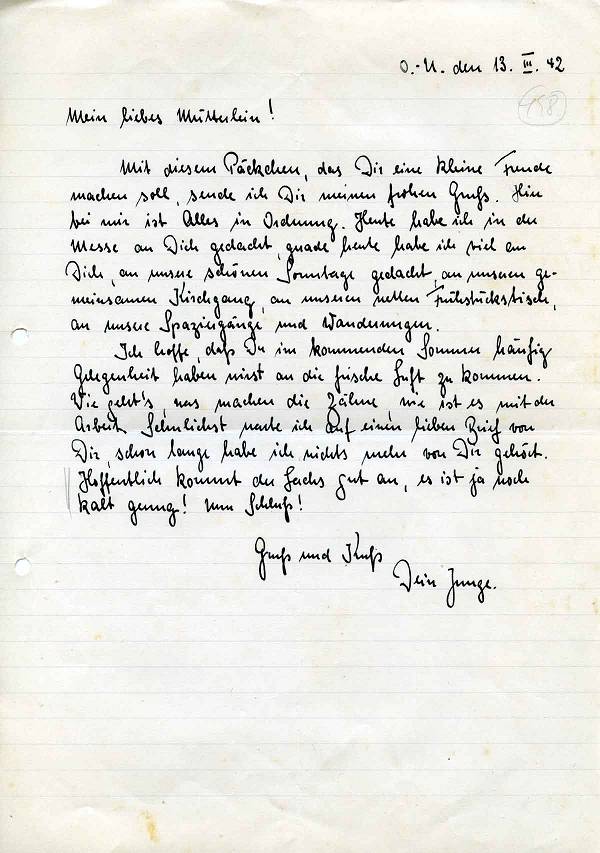 O.-U. den 13. III. 42
458
Mein liebes Mütterlein!
Mit diesem Päckchen, das Dir eine kleine Freude
machen soll, sende ich Dir meinen frohen Gruß. Hier
bei mir ist Alles in Ordnung. Heute habe ich in der
Messe an Dich gedacht, grade heute habe ich viel an
Dich, an unsere schönen Sonntage gedacht, an unseren ge-
meinsamen Kirchgang, an unseren netten Frühstückstisch,
an unsere Spaziergänge und Wanderungen.
Ich hoffe, daß Du im kommenden Sommer häufig
Gelegenheit haben wirst an die frische Luft zu kommen.
Wie geht's, was machen die Zähne, wie ist es mit der
Arbeit. Sehnlichst warte ich auf einen lieben Brief von
Dir, schon lange habe ich nichts mehr von Dir gehört.
Hoffentlich kommt der Lachs gut an, es ist ja noch
kalt genug! Nun Schluß!
Gruß und Kuß
Dein Junge.